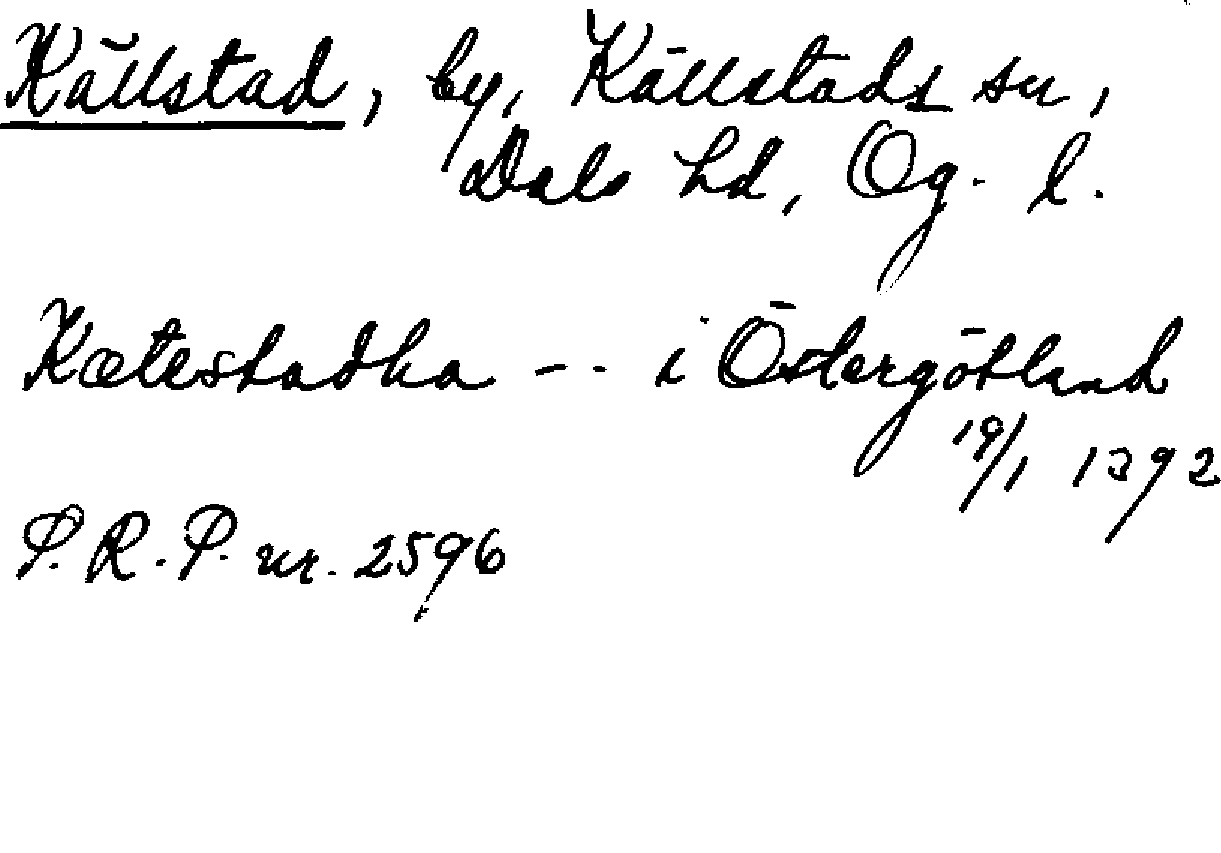 Källstad, by, Källstads sn,
Dals hd, Ög. l.
Kætestadha - - - i Östergötland
19/1 1392
P. R. P. nr. 2596